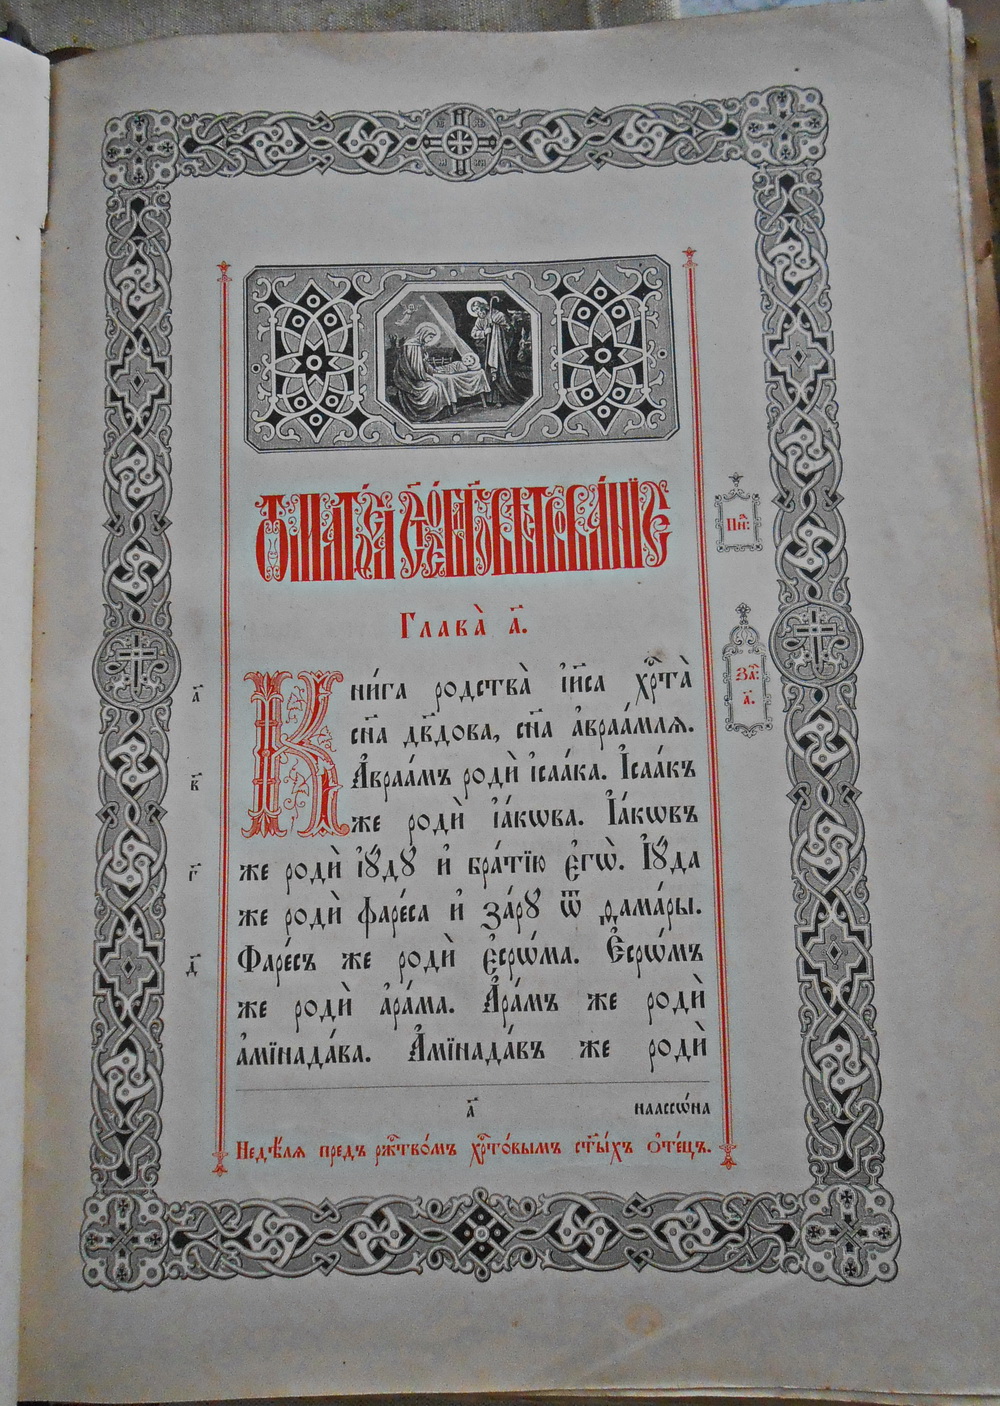 Ѿ МАТѲЕ́А СТ҃О́Е БЛГ҃ОВѢСТВОВА́НЇЕ
Пн҃:
Глава̀ а҃.
За҃:
а҃.
а҃
Кни́га родства̀ і҆и҃са хрⷭ҇та̀
сн҃а дв҃дова, сн҃а а҆враа́млѧ.
в҃
А҆враа́мъ родѝ і҆саа́ка. І҆саа́къ
же родѝ і҆а́кѡва. І҆а́кѡвъ
г҃
же родѝ і҆ꙋ́дꙋ и҆ бра́тїю є҆гѡ̀. І҆ꙋ́да
же родѝ фаре́са и҆ за́рꙋ ѿ ѳама́ры.
д҃
Фаре́съ же родѝ є҆срѡ́ма. Є҆срѡ́мъ
же родѝ а҆ра́ма. А҆ра́мъ же родѝ
а҆мїнада́ва. А҆мїнада́въ же родѝ
а҃
наассѡ́на
Недѣ́лѧ пред̾ ржⷭ҇тво́мъ хрⷭ҇то́вымъ ст҃ы́хъ ѻ҆те́цъ.